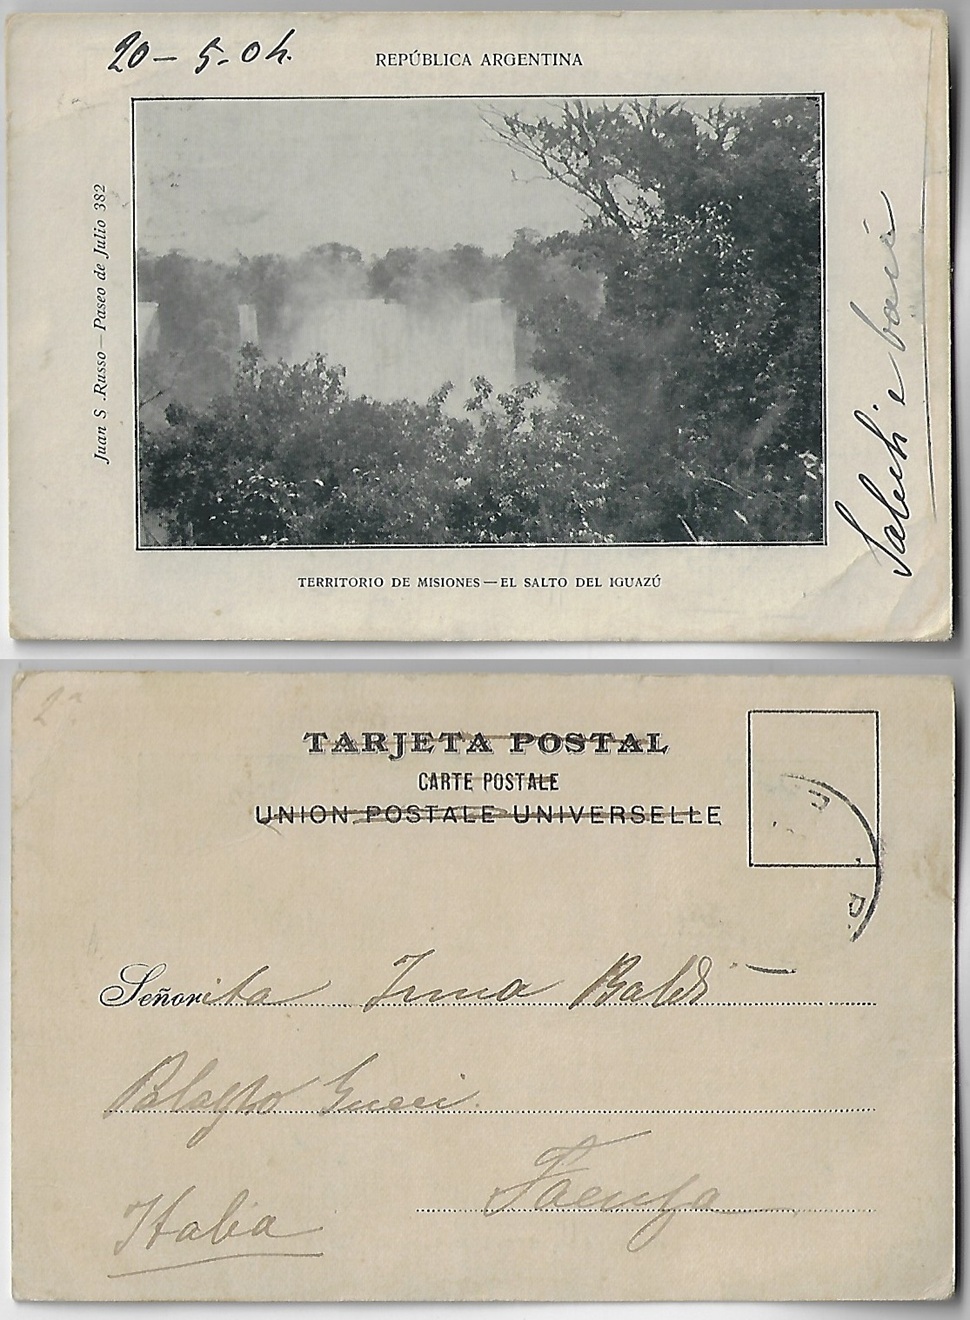 20-5-04.
REPÚBLICA ARGENTINA
Juan S. Russo — Paseo de Julio 382
TERRITORIO DE MISIONES — EL SALTO DEL IGUAZÚ
Saluti e baci
2ª
TARJETA POSTAL
CARTE POSTALE
UNION POSTALE UNIVERSELLE
Señorita Irma Baldi
Palazzo Gucci.
Faenza
Italia